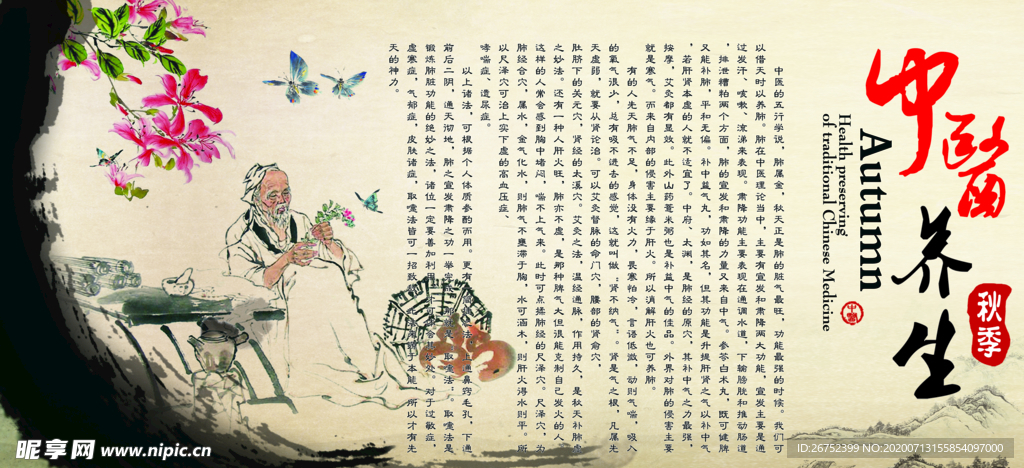 中醫
养生
秋季
Autumn
Health preserving
of traditional Chinese Medicine
中医的五行学说，肺属金，秋天正是肺的脏气最旺，功能最强的时候。我们可
以借天时以养肺。肺在中医理论当中，主要有宣发和肃降两大功能，宣发主要是通
过发汗、咳嗽、流涕来表现。肃降功能主要表现在通调水道，下输膀胱和推动肠道
，排泄糟粕两个方面，肺的宣发和肃降的力量又来自中气。参苓白术丸，既可健脾
又能补肺，平和无偏。补中益气丸，功如其名，但其功能是升提肝肾之气以补中气
，若肝肾本虚的人就不适宜了。中府、太渊，是肺经的原穴，其补中气之力最强，
按摩，艾灸都有显效。此外山药薏米粥也是补益中气的佳品。外界对肺的侵害主要
就是寒气。而来自内部的侵害主要缘于肝火。所以消解肝火也可养肺。
有的人先天肺气不足，身体没有火力，畏寒怕冷，言语低微，动则气喘，吸入
的氧气很少，总有吸不进去的感觉，这就叫做“肾不纳气”。肾是气之根，凡属先
天虚弱，就要从肾论治。可以艾灸督脉的命门穴，腰部的肾俞穴，
肚脐下的关元穴，肾经的太溪穴。艾灸之法，温经通脉，作用持久，是秋天补肺虚
之妙法。还有一种人肝火旺，肺亦不虚，是那种脾气大但很能克制自己发火的人，
这样的人常会感到胸中堵闷，喘不上气来。此时可点揉肺经的尺泽穴。尺泽穴，为
肺经合穴，属水，金气化水，则肺气不壅滞于胸，水可涵木，则肝火得水则平。所
以尺泽穴可治上实下虚的高血压症、
哮喘症、遗尿症。
以上诸法，可根据个人体质参酌而用。更有
上通鼻窍毛孔，下通
前后二阴，通天彻地，肺之宣发肃降之功一举完
取嚏法是
锻炼肺脏功能的绝妙之法，诸位一定要善加利用
妙处。对于过敏症，
虚寒症，气郁症，皮肤诸症，取嚏法皆可一招致
于本能，所以才有先
天的神力。
昵享网 www.nipic.cn
ID:26752399 NO:20200713155854097000